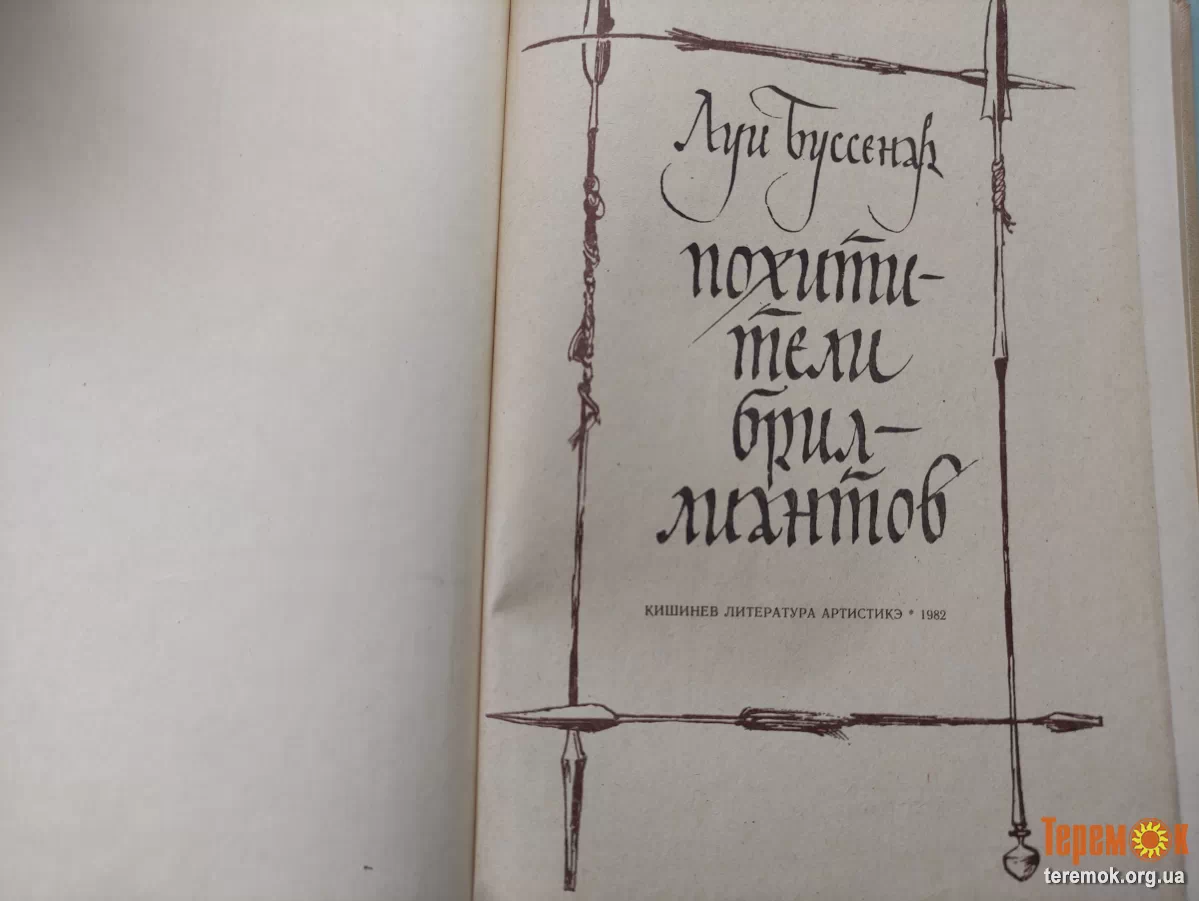 Луи Буссенар
похити-
тели
брил-
лиантов
КИШИНЕВ ЛИТЕРАТУРА АРТИСТИКЭ * 1982
Теремок
teremok.org.ua